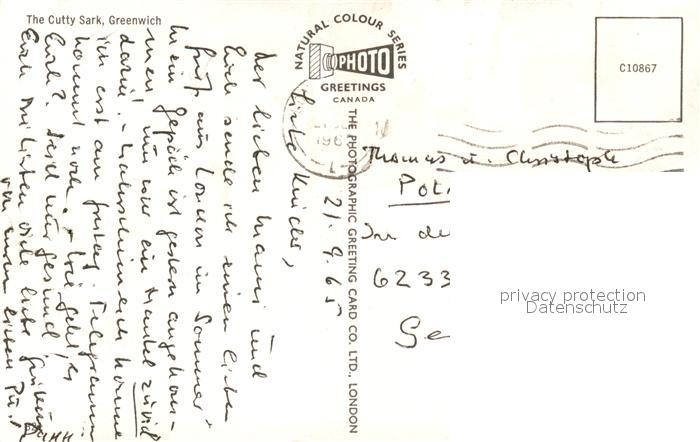 The Cutty Sark, Greenwich
NATURAL COLOUR SERIES
PHOTO
GREETINGS
CANADA
THE PHOTOGRAPHIC GREETING CARD CO. LTD., LONDON
C10867
21. 9. 65
Liebe Kinder,
der lieben Mami und
Euch sende ich einen lieben
Gruß aus London im Sommer.
Mein Gepäck ist gestern angekom-
men, nur war ein Mantel zuviel
darin! - Wahrscheinlich komme
ich erst am Freitag. Telegramm
kommt noch. - Wie geht es
Euch? Seid Ihr gesund?
Euch Dreien viele liebe Grüße
von Eurem lieben
Thomas u. Christoph
In
6233
privacy protection
Datenschutz